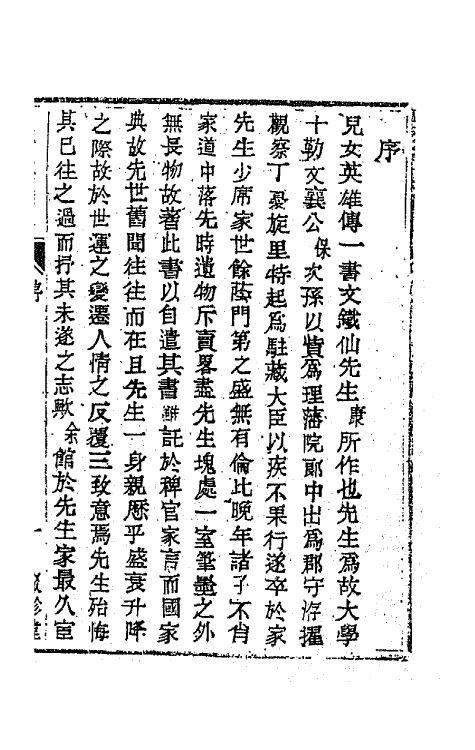 序
兒女英雄傳一書文鐵仙先生康所作也先生爲故大學
士勒文襄公保次孫以貲爲理藩院郞中出爲郡守洊擢
觀察丁憂旋里特起爲駐藏大臣以疾不果行遂卒於家
先生少席家世餘蔭門第之盛無有倫比晚年諸子不肖
家道中落先時遺物斥賣畧盡先生塊處一室筆墨之外
無長物故著此書以自遣其書雖託於稗官家言而國家
典故先世舊聞往往而在且先生一身親歷乎盛衰升降
之際故於世運之變遷人情之反覆三致意焉先生殆悔
其已往之過而抒其未遂之志歟余館於先生家最久宦
序
一